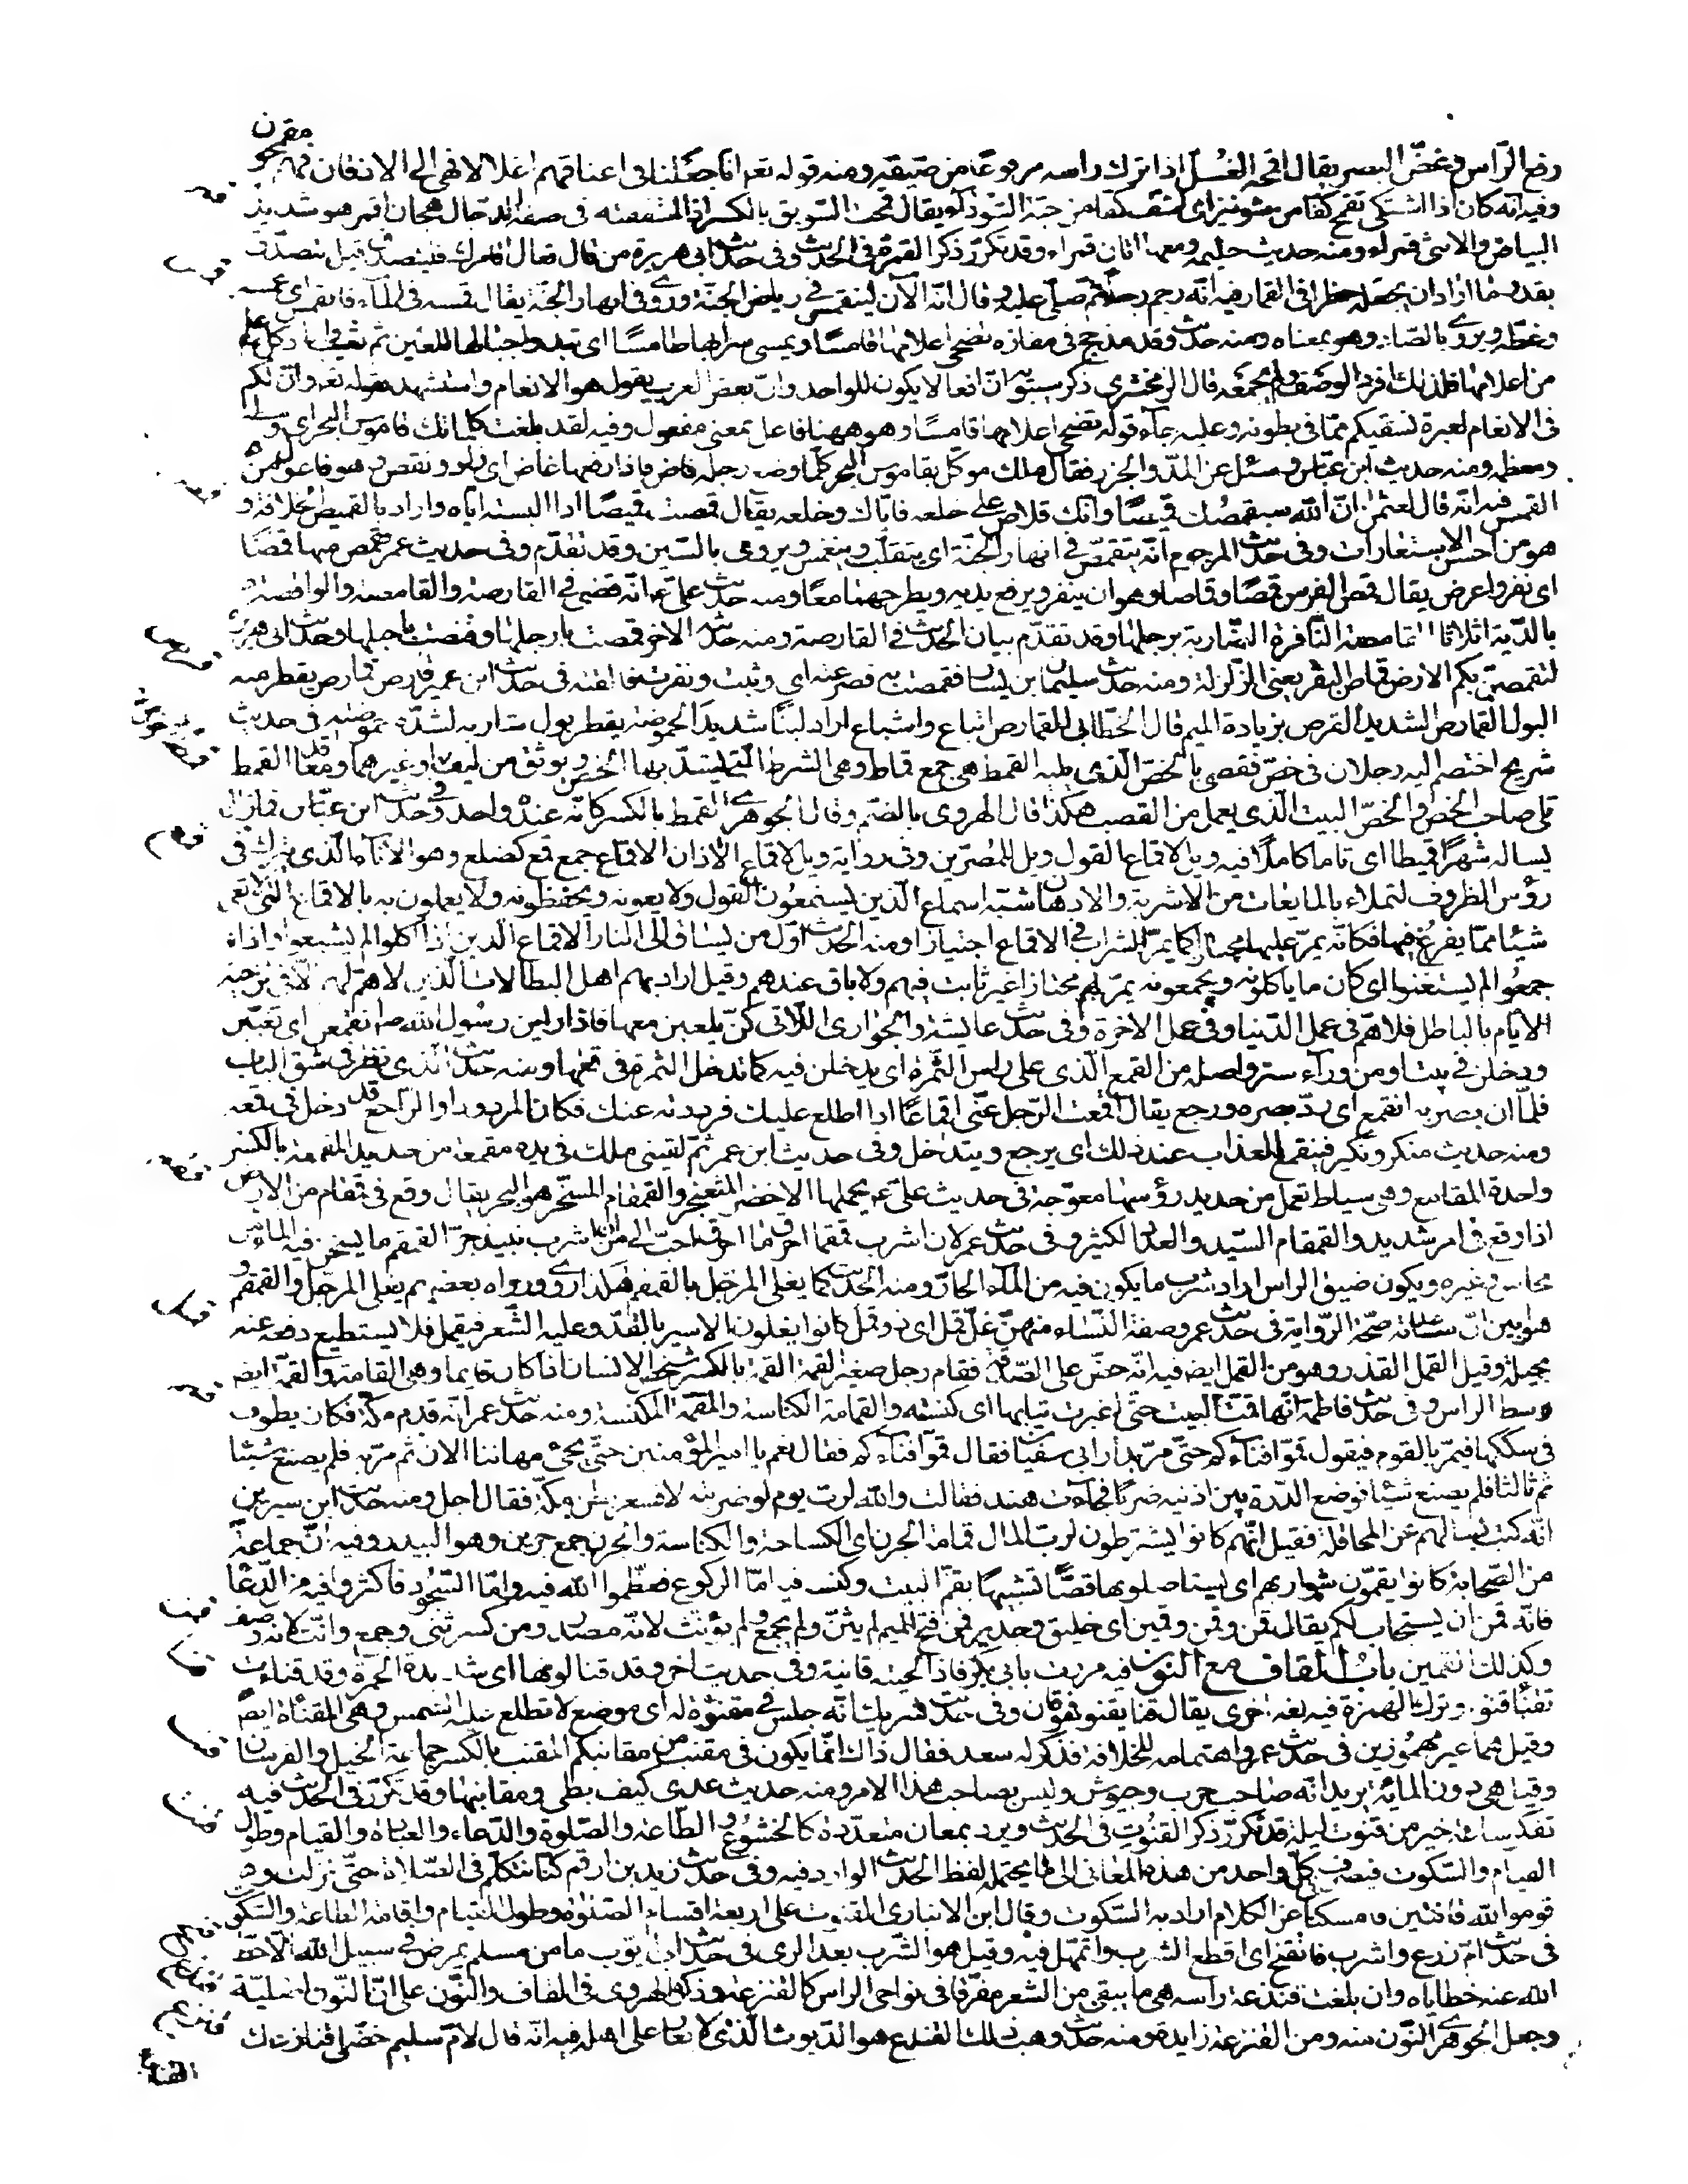 رفع الرّاس وغضّ البصر يقال اقمحه الغُلّ اذا ترك راسه مرفوعًا من ضيقه ومنه قوله تعـ انا جعلنا فى اعناقهم اغلالا فهى الى الاذقان فهم مقمحون
وفيه انّه كان اذا اشتكى تقمّح كفّا من شونيز اى استفّ كفّا من حبّة السّوداء يقال قمحت السّويق بالكسر اذا استففته فى صفة الدجّال هجان اقمر هو شديد
البياض والانثى قمراء ومنه حديث حليمة ومعها اتان قمراء وقد تكرّر ذكر القمرة فى الحديث وفى حديث ابى هريرة من قال تعال اقامرك فليتصدّق قيل يتصدّق
بقدر ما اراد ان يجعله خطرا فى القمار فيه انّه رجم رجلا ثم صلّى عليه وقال انّه الآن لينقمس فى رياض الجنّة وروى فى انهار الجنّة يقال قمسه فى الماء فانقمس اى غمسه
وغطّه ويروى بالصّاد وهو بمعناه ومنه حديث وفد مذحج فى مفازة تضحى اعلامها قامسًا ويمسى سرابها طامسًا اى تبدو جبالها للعين ثم تغيب واراد كلّ علم
من اعلامها فلذلك افرد الوصف ولم يجمعه قال الزمخشرى ذكر سيبويه انّ افعالا يكون للواحد وانّ بعض العرب يقول هو الانعام واستشهد بقوله تعـ وانّ لكم
فى الانعام لعبرة نسقيكم ممّا فى بطونه وعليه جاء قوله تضحى اعلامها قامسًا وهو ههنا فاعل بمعنى مفعول وفيه لقد بلغت كلماتك قاموس البحر اى وسطه
ومعظمه ومنه حديث ابن عبّاس وسئل عن المدّ والجزر فقال ملك موكّل بقاموس البحر كلّما وضع رجله فاض فاذا رفعها غاض اى زاد ونقص وهو فاعول من
القمس فيه انّه قال لعثمن انّ الله سيقمّصك قميصًا وانّك تلاص على خلعه فايّاك وخلعه يقال قمّصته قميصًا اذا البسته ايّاه واراد بالقميص الخلافة و
هو من احسن الاستعارات وفى حديث المرجوم انّه يتقمّص فى انهار الجنّة اى يتقلّب وينغمس ويروى بالسّين وقد تقدّم وفى حديث عمر فقمص منها قمصًا
اى نفر واعرض يقال قمص الفرس قمصًا وقماصا وهو ان ينفر ويرفع يديه ويطرحهما معًا ومنه حديث علىّ عـ انّه قضى فى القارصة والقامصة والواقصة
بالدّية اثلاثا القامصة النّافرة الضّاربة برجلها وقد تقدّم بيان الحديث فى القارصة ومنه حديثه الاخر قمصت بارجلها وقنصت باحبلها وحديث ابى هريرة
لتقمصنّ بكم الارض قماص البقر يعنى الزّلزلة ومنه حديث سليمان ابن يسار فقمصت به فصرعته اى وثبت ونفرت فالقته فى حديث ابن عمير لقارص قمارص يقطر منه
البول القمارص الشديد القرص بزيادة الميم قال الخطّابى القمارص اتباع واشباع اراد لبنًا شديد الحموضة يقطر بول شاربه لشدّة حموضته فى حديث
شريح اختصم اليه رجلان فى خصّ فقضى بالخصّ للّذى يليه القمط هى جمع قماط وهى الشرط الّتى يشدّ بها الخصّ ويوثق من ليف او غيرهما ومعاقد القمط
تلى صاحب الخصّ والخصّ البيت الّذى يعمل من القصب هكذا قال الهروى بالضّم وقال الجوهرى القمط بالكسر كانّه عنده واحد وفى حديث ابن عبّاس فمازال
يساله شهرًا قميطا اى تاما كاملًا فيه ويل لاقماع القول ويل للمصرّين وفى رواية ويل لاقماع الاذان الاقماع جمع قمع كضلع وهو الاناء الّذى يترك فى
رؤس الظروف لتملاء بالمايعات من الاشربة والادهان شبّه اسماع الّذين يستمعون القول ولا يعونه ويحفظونه ولا يعملون به بالاقماع الّتى لا تعى
شيئا ممّا يفرغ فيها فكانّه يمرّ عليها مجتازا كما يمرّ الشراب فى الاقماع اجتيازا ومنه الحديث اوّل من يساق الى النار الاقماع الّذين اذا اكلوا لم يشبعوا واذا
جمعوا لم يستغنوا اى كان ما ياكلونه ويجمعونه يمرّ بهم مجتازا غير ثابت فيهم ولا باق عندهم وقيل اراد بهم اهل البطالات الّذين لا همّ لهم الّا فى تزجية
الايّام بالباطل فلا هم فى عمل الدّنيا ولا فى عمل الاخرة وفى حديث عايشة والجوارى اللّاتى كنّ يلعبن معها فاذا راين رسول الله صـ انقمعن اى تغيّبن
ودخلن فى بيت او من وراء ستر واصله من القمع الّذى على راس الثّمرة اى يدخلن فيه كما تدخل الثمرة فى قمعها ومنه حديث الّذى نظر فى شقّ الباب
فلمّا ان بصر به انقمع اى ردّ بصره ورجع يقال اقمعت الرّجل عنّى اقماعًا اذا اطلع عليك فرددته عنك فكانّ المردود او الرّاجع قد دخل فى قمعه
ومنه حديث منكر ونكير فينقمع العذاب عند ذلك اى يرجع ويتداخل وفى حديث ابن عمر ثمّ لقينى ملك فى يده مقمعة من حديد المقمعة بالكسر
واحدة المقامع وهى سياط تعمل من حديد رؤسها معوّجة فى حديث علىّ عـ يحملها الاخضر المثعنجر والقمقام المسخّر هو البحر يقال وقع فى قمقام من الارض
اذا وقع فى امر شديد والقمقام السّيد والعدد الكثير وفى حديث عمر لان اشرب قمقما احرق ما احرق احبّ الىّ من ان اشرب نبيذ جرّ القمقم ما يسخن فيه الماء من
نحاس وغيره ويكون ضيق الراس اراد شرب ما يكون فيه من الماء الحارّ ومنه الحديث كما يغلى المرجل بالقمقم هكذا روى ورواه بعضهم يغلى المرجل والقمقم و
هو ابين ان ساعدته صحّة الرّواية فى حديث عمر وصفة النّساء منهنّ غلّ قمل اى ذو قمل كانوا يغلون الاسير بالقدّ وعليه الشّعر فيقمل فلا يستطيع دفعه عنه
بحيلة وقيل القمل القذر وهو من القمل ايضا فيه انّه حضّ على الصّدقة فقام رجل صغير القمّة القمّة بالكسر شخص الانسان اذا كان قايما وهى القامة والقمّة ايضا
وسط الراس وفى حديث فاطمة انّها قمّت البيت حتّى اغبرت ثيابها اى كنسته والقمامة الكناسة والمقمّة المكنسة ومنه حديث عمر انّه قدم مكّة فكان يطوف
فى سككها فيمرّ بالقوم فيقول قمّوا فناءكم حتّى مرّ بدار ابى سفين فقال قمّوا فناءكم فقال نعم يا امير المؤمنين حتّى يجئ مهاننا الان ثم مرّ به فلم يصنع شيئا
ثم ثالثا فلم يصنع شيئا فوضع الدّرة بين اذنيه ضربًا فجاءت هند فقالت والله لربّ يوم لو ضربته لاقشعر بطن مكّة فقال اجل ومنه حديث ابن سيرين
انّه كتب يسالهم عن المحاقلة فقيل انّهم كانوا يشترطون لربّ المال قمامة الجرن اى الكساحة والكناسة والجرن جمع جرين وهو البيدر وفيه انّ جماعة
من الصّحابة كانوا يقمّون شواربهم اى يستاصلونها قصًّا تشبيهًا بقمّ البيت وكنسه فيه امّا الركوع فعظّموا الله فيه وامّا السّجود فاكثروا فيه من الدّعاء
فانّه قمن ان يستجاب لكم يقال قمن وقمن وقمين اى خليق وجدير فمن فتح الميم لم يثنّ ولم يجمع ولم يؤنّث لانّه مصدر ومن كسر ثنّى وجمع وانّث لانّه وصف
وكذلك القمين باب القاف مع النون فيه مررت بابى بكر فاذا لحيته قانية وفى حديث اخر وقد قنا لونها اى شديدة الحمرة وقد قناءت
تقنا قنوء وترك الهمزة فيه لغة اخرى يقال قنا يقنو فهو قان وفى حديث شريك انّه جلس فى مقنوءة له اى موضع لا تطلع عليه الشمس وهى المقناة ايضا
وقيل هما غير مهموزين فى حديث عمر واهتمامه للخلافة فذكر له سعد فقال ذاك انّما يكون فى مقنب من مقانبكم المقنب بالكسر جماعة الخيل والفرسان
وقيل هى دون المائة يريد انّه صاحب حرب وجيوش وليس بصاحب هذا الامر ومنه حديث عدى كيف بطى ومقانبها وقد تكرّر فى الحديث فيه
تفكّر ساعة خير من قنوت ليلة قد تكرّر ذكر القنوت فى الحديث ويرد بمعان متعدّدة كالخشوع والطّاعة والصّلوة والدّعاء والعبادة والقيام وطول
القيام والسّكوت فيصرف كلّ واحد من هذه المعانى الى ما يحتمله لفظ الحديث الوارد فيه وفى حديث زيد بن ارقم كنّا نتكلّم فى الصّلاة حتّى نزلت و
قوموا لله قانتين فامسكنا عن الكلام اراد به السّكوت وقال ابن الانبارى القنوت على اربعة اقسام الصّلوة وطول القيام واقامة الطاعة والسّكوت
فى حديث امّ زرع واشرب فاتقنّح اى اقطع الشرب واتمهّل فيه وقيل هو الشّرب بعد الرى فى حديث ابى ايّوب ما من مسلم يمرض فى سبيل الله الّا حطّ
الله عنه خطاياه وان بلغت قنذعة راسه هى ما يبقى من الشعر مفرّقا فى نواحى الراس كالقنزعة وذكره الهروى فى القاف والنّون على انّ النّون اصليّة
وجعل الجوهرى النّون منه ومن القنزعة زايدة ومنه حديث وهب ذلك القنذع هو الدّيوث الّذى لا يغار على اهله فيه انّه قال لامّ سليم خضّلى قنازعك